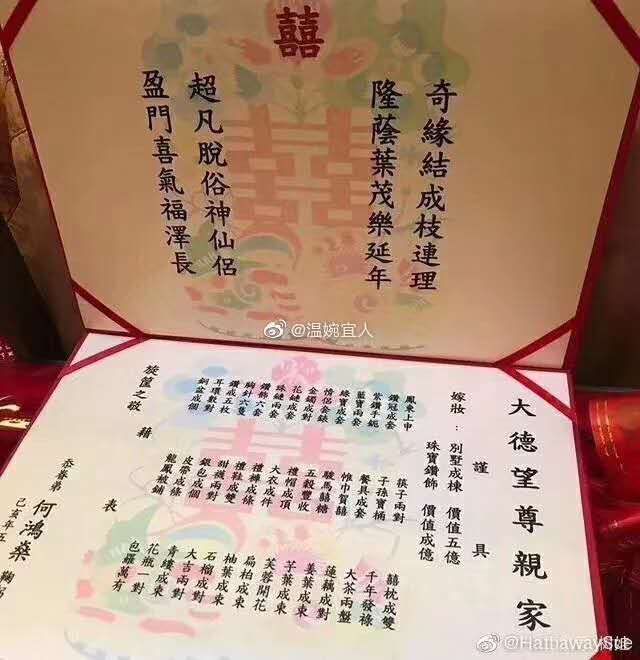 囍
奇緣結成枝連理
隆蔭葉茂樂延年
超凡脫俗神仙侶
盈門喜氣福澤長
@温婉宜人
大德望尊親家
謹具
嫁妝：別墅成棟 價值五億
珠寶鑽飾 價值成億
鳳東上申
鑽冠成套 筷子兩對 囍枕成雙
紫鑽手鈪 子孫寶桶 千年發祿
藍寶兩套 餐具成套 大茶兩盤
綠寶成套 帷巾賀囍 蓮藕成對
情侶套錶 駿馬囍糖 姜葉成束
金鐲成對 五穀豐收 芋葉成束
花鏈成套 禮帽成頂 芙蓉開花
珠鏈兩套 大衣成件 扁柏成束
鑽飾六套 禮褲成條 柚葉成束
胸針六隻 禮鞋成雙 石榴成對
鑽戒五枚 甜襪兩對 大吉兩對
耳環數對 銀包成個 青縷成束
銅盆成個 皮帶成條 花瓶一對
龍鳳被鋪 包羅萬有
旋筐之敬 藉 表
忝眷弟 何鴻燊 鞠躬
己亥年五
@HathawaySue